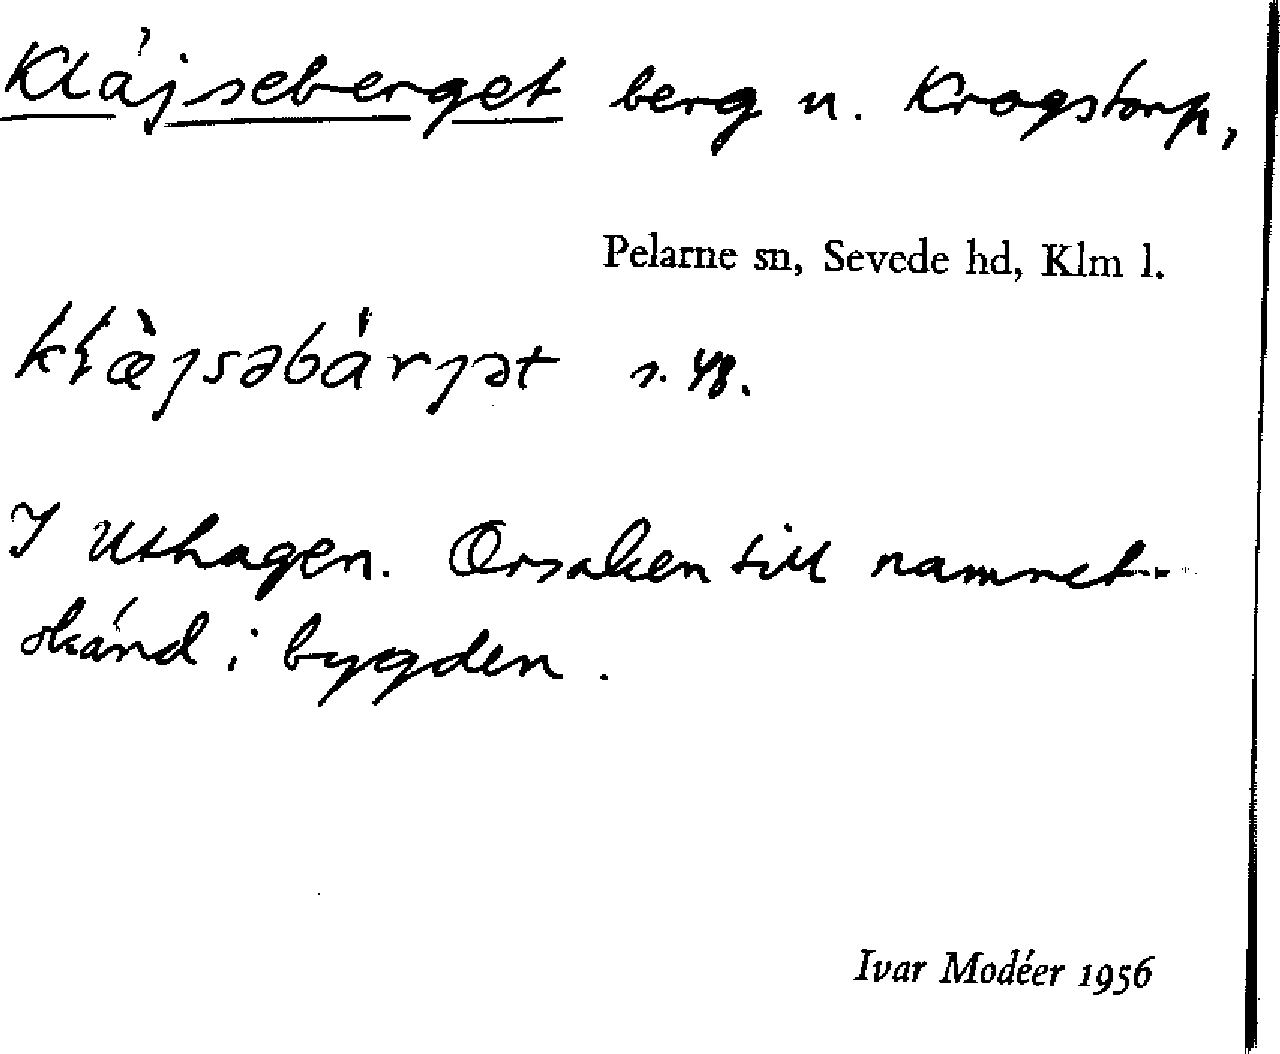 Kläjseberget berg u. Krogstorp,
Pelarne sn, Sevede hd, Klm l.
klæ̀jsəbárjət s. 48.
I Uthagen. Orsaken till namnet
okänd i bygden.
Ivar Modéer 1956